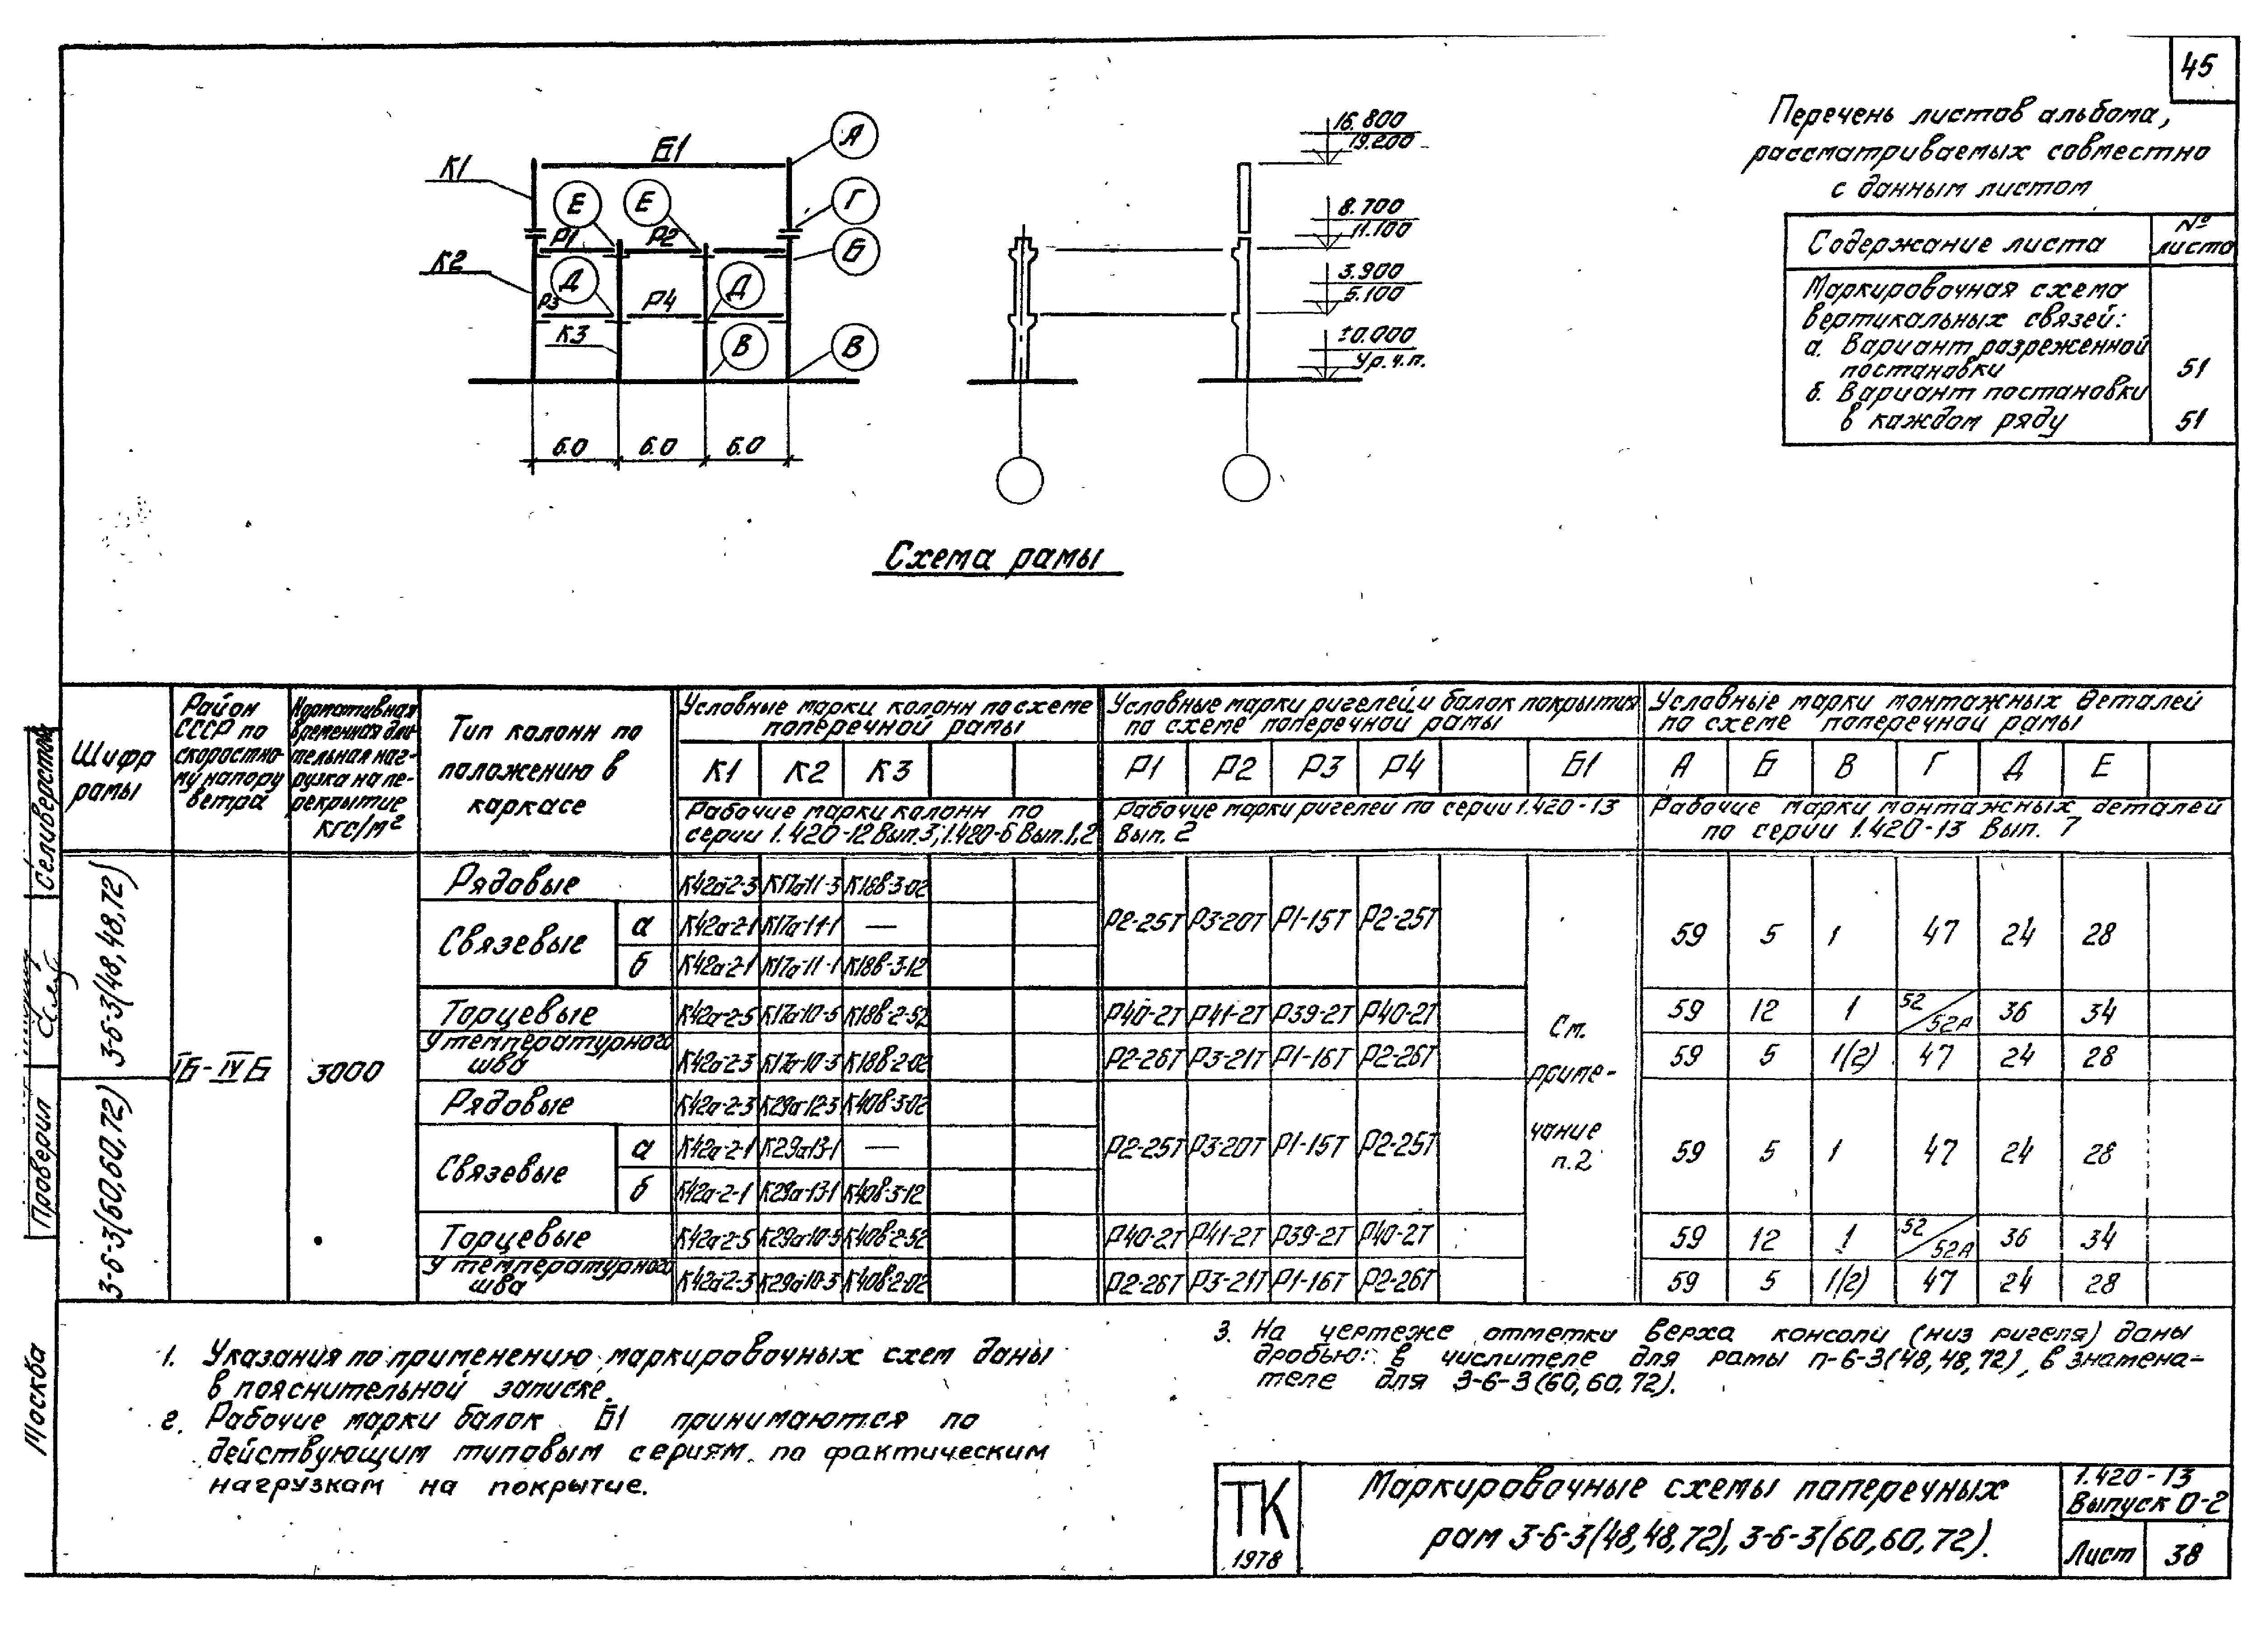 45
Перечень листов альбома,
рассматриваемых совместно
с данным листом
Содержание листа
№ листа
Маркировочная схема
вертикальных связей:
а. Вариант разреженной
постановки 51
б. Вариант постановки
в каждом ряду 51
К1 Б1 А
Е Е Г
Р1 Р2 Б
К2 Д Д
Р3 Р4
К3 В В
6.0 6.0 6.0
16.800
19.200
8.700
11.100
3.900
5.100
±0.000
Ур.ч.п.
Схема рамы
Шифр рамы
Район СССР по скоростному напору ветра
Нормативная временная длительная нагрузка на перекрытие кгс/м²
Тип колонн по положению в каркасе
Условные марки колонн по схеме поперечной рамы
Условные марки ригелей и балок покрытия по схеме поперечной рамы
Условные марки монтажных деталей по схеме поперечной рамы
К1 К2 К3 Р1 Р2 Р3 Р4 Б1 А Б В Г Д Е
Рабочие марки колонн по серии 1.420-12 Вып.3; 1.420-6 Вып.1,2
Рабочие марки ригелей по серии 1.420-13 Вып. 2
Рабочие марки монтажных деталей по серии 1.420-13 Вып. 7
3-6-3(48,48,72)
3-6-3(60,60,72)
IБ-IVБ
3000
Рядовые К42а-2-3 К17а-11-3 К18в-3-02
Связевые а К42а-2-1 К17а-11-1 —
б К42а-2-1 К17а-11-1 К18в-3-12
Р2-25Т Р3-20Т Р1-15Т Р2-25Т
59 5 1 47 24 28
Торцевые К42а-2-5 К17а-10-5 К18в-2-52 Р40-2Т Р41-2Т Р39-2Т Р40-2Т 59 12 1 52/52А 36 34
У температурного шва К42а-2-3 К17а-10-3 К18в-2-02 Р2-26Т Р3-21Т Р1-16Т Р2-26Т 59 5 1(2) 47 24 28
См. примечание п.2
Рядовые К42а-2-3 К29а-12-3 К40в-3-02
Связевые а К42а-2-1 К29а-13-1 —
б К42а-2-1 К29а-13-1 К40в-3-12
Р2-25Т Р3-20Т Р1-15Т Р2-25Т
59 5 1 47 24 28
Торцевые К42а-2-5 К29а-10-5 К40в-2-52 Р40-2Т Р41-2Т Р39-2Т Р40-2Т 59 12 1 52/52А 36 34
У температурного шва К42а-2-3 К29а-10-3 К40в-2-02 Р2-26Т Р3-21Т Р1-16Т Р2-26Т 59 5 1(2) 47 24 28
1. Указания по применению маркировочных схем даны
в пояснительной записке.
2. Рабочие марки балок Б1 принимаются по
действующим типовым сериям по фактическим
нагрузкам на покрытие.
3. На чертеже отметки верха консоли (низ ригеля) даны
дробью: в числителе для рамы п-6-3(48,48,72), в знамена-
теле для 3-6-3(60,60,72).
ТК
1978
Маркировочные схемы поперечных
рам 3-6-3(48,48,72), 3-6-3(60,60,72).
1.420-13
Выпуск 0-2
Лист 38
Селиверстов
Проверил
Москва